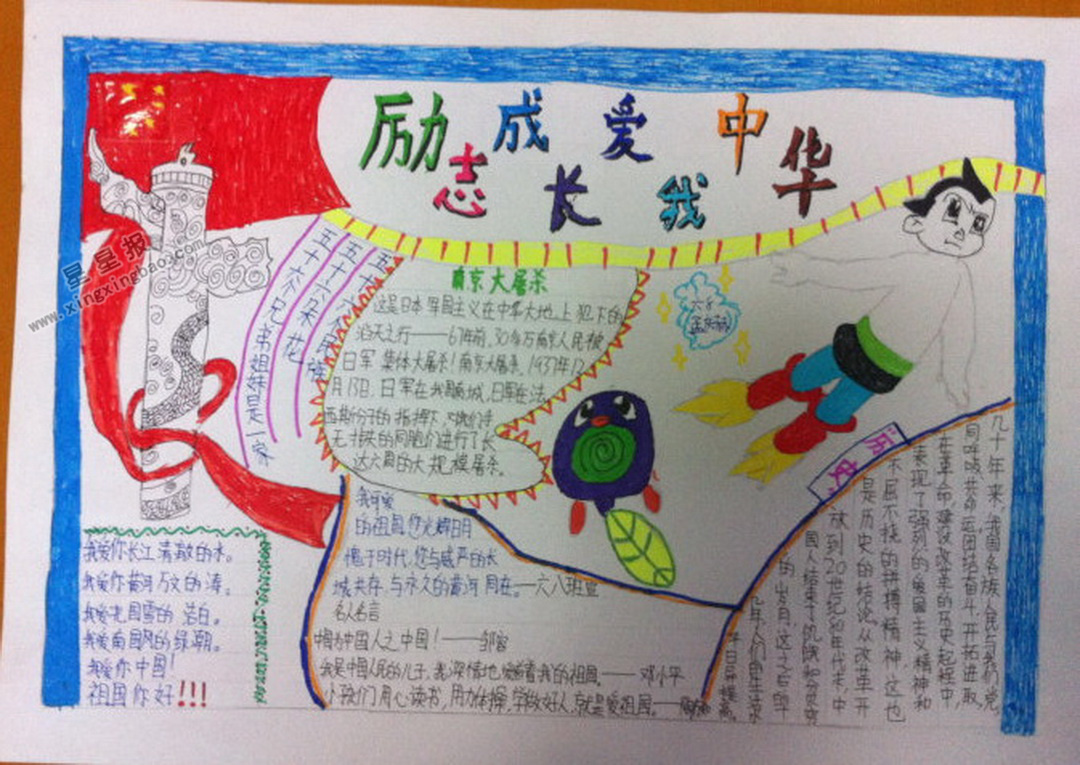 励志成长 爱我中华
星星报
www.xingxingbao.com
五十六朵花
五十六兄弟姐妹是一家
南京大屠杀
这是日本军国主义在中华大地上犯下的
滔天之行——67年前,30多万南京人民被
日军集体大屠杀!南京大屠杀.1937年12
月13日,日军在我国南城,日军在法
西斯分子的指挥下,对我们手
无寸铁的同胞们进行了长
达六周的大规模屠杀。
六年
我可爱
的祖国,您光辉日月
愧于时代,您与威严的长
城共存,与永久的黄河同在。——六八班
名人名言
中国人之中国!——邹容
我是中国人民的儿子,我深情地爱着我的祖国——邓小平
小孩们用心读书,用力体操,学做好人,就是爱祖国。——
我爱你长江清澈的水。
我爱你黄河万丈的涛。
我爱北国雪的洁白。
我爱南国风的绿潮。
我爱你中国!
祖国你好!!!
历史
几十年来,我国各族人民与我们党,
同呼吸共命运团结奋斗,开拓进取,
在革命建设改革的历史起程中,
表现了强烈的爱国主义精神和
不屈不挠的拼搏精神,这也
是历史的结论。从改革开
放到20世纪80年代末,中
国人结束了饥饿和贫穷
的岁月,这之后的
几年人们的生活